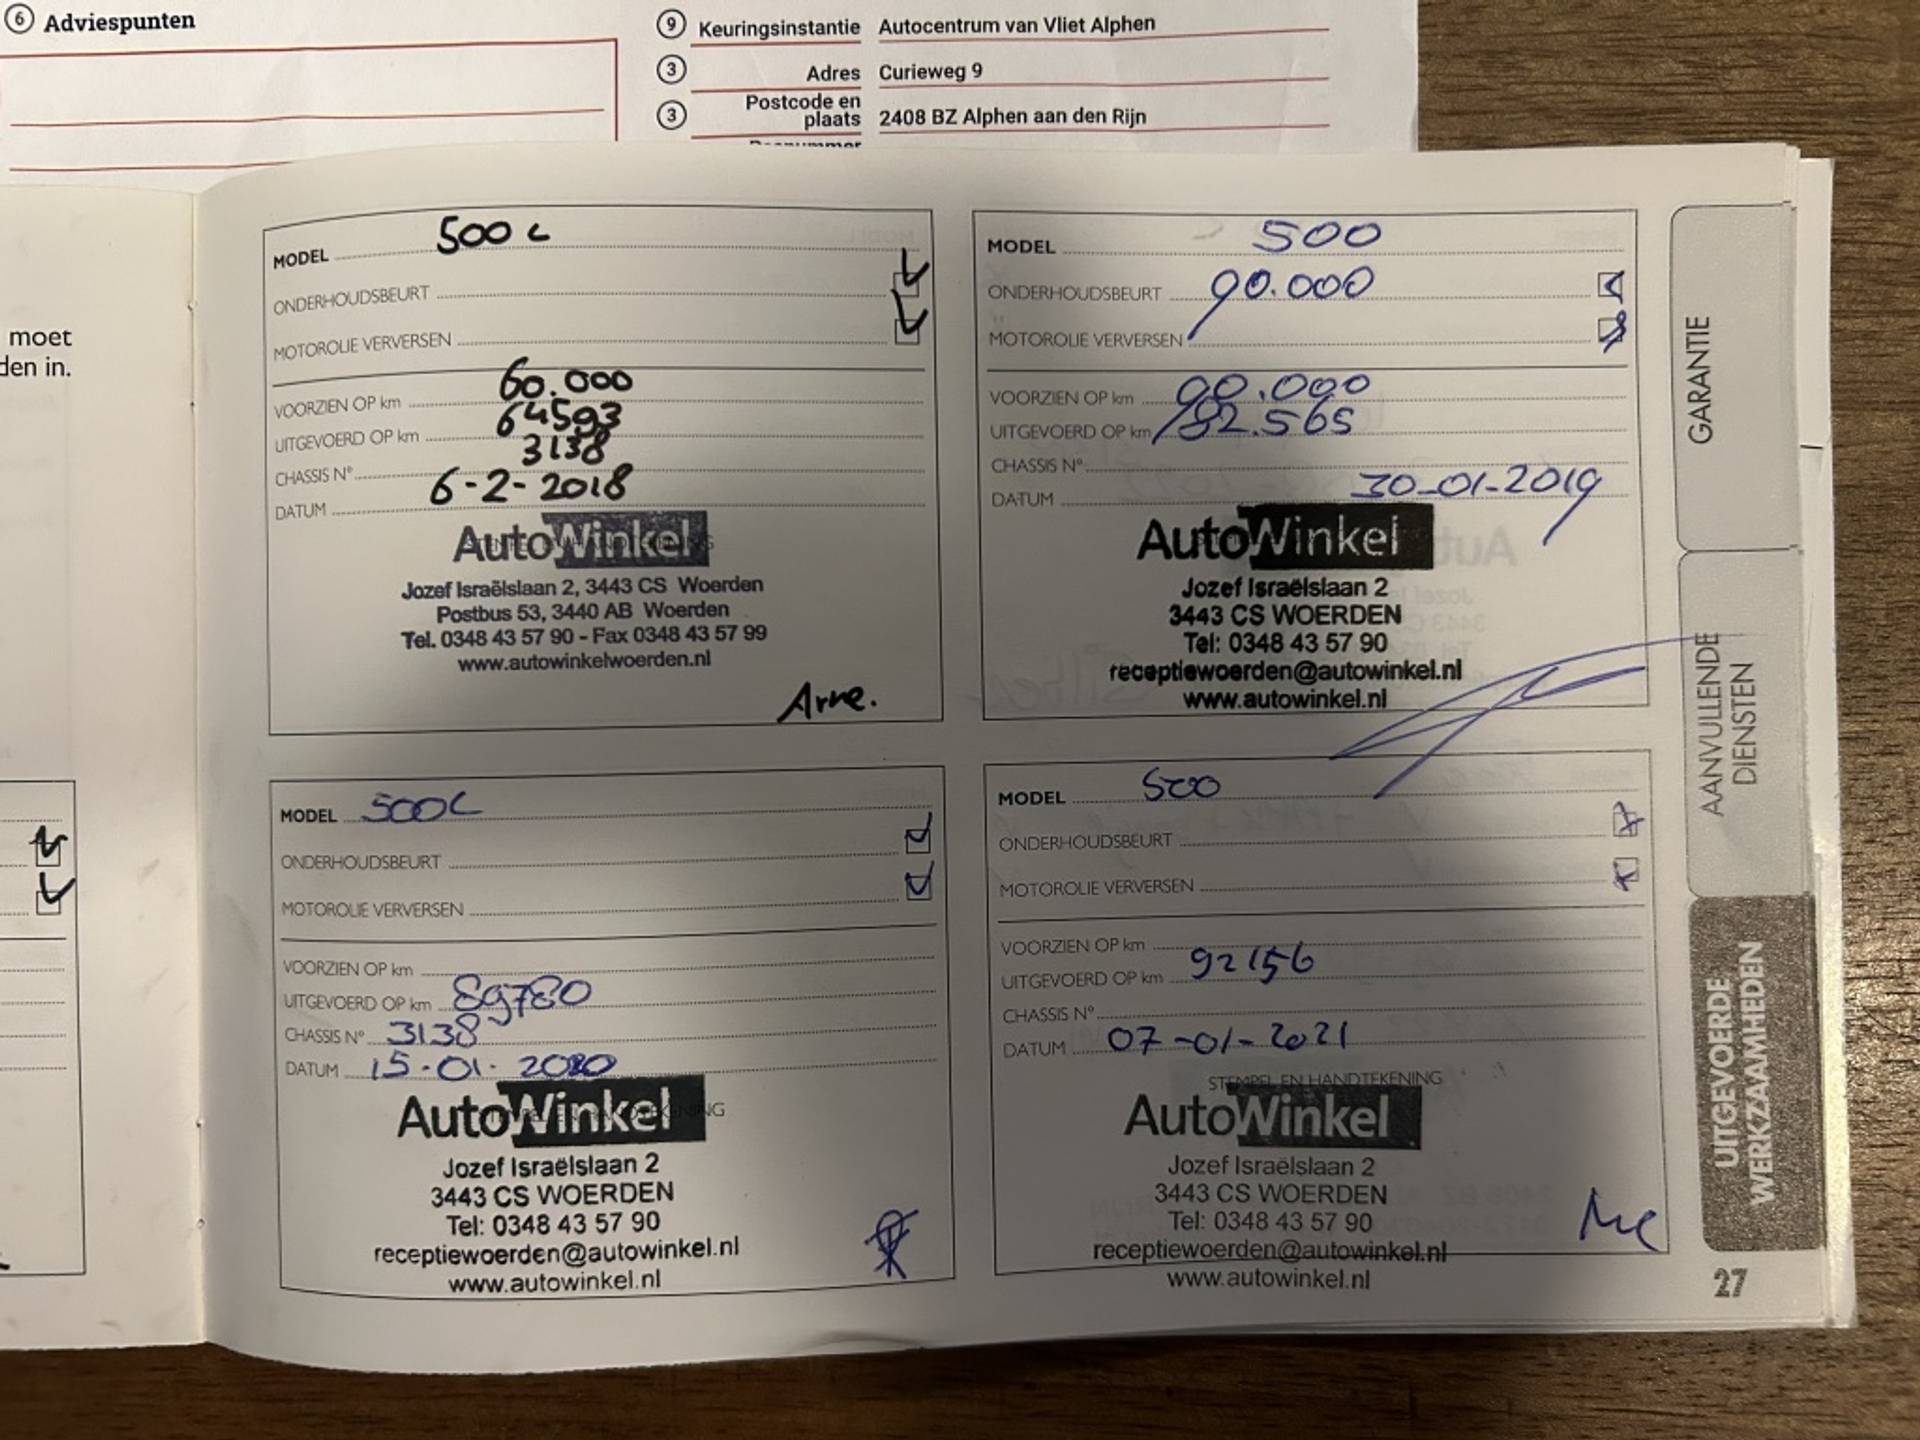 6 Adviespunten
9 Keuringsinstantie Autocentrum van Vliet Alphen
3 Adres Curieweg 9
3 Postcode en plaats 2408 BZ Alphen aan den Rijn
moet
den in.
MODEL 500 C
ONDERHOUDSBEURT
MOTOROLIE VERVERSEN
VOORZIEN OP km 60.000
UITGEVOERD OP km 64593
CHASSIS N° 3138
DATUM 6-2-2018
STEMPEL EN HANDTEKENING
AutoWinkel
Jozef Israëlslaan 2, 3443 CS Woerden
Postbus 53, 3440 AB Woerden
Tel. 0348 43 57 90 - Fax 0348 43 57 99
www.autowinkelwoerden.nl
Arne.
MODEL 500
ONDERHOUDSBEURT 90.000
MOTOROLIE VERVERSEN
VOORZIEN OP km 90.000
UITGEVOERD OP km 82.565
CHASSIS N°
DATUM 30-01-2019
AutoWinkel
Jozef Israëlslaan 2
3443 CS WOERDEN
Tel: 0348 43 57 90
receptiewoerden@autowinkel.nl
www.autowinkel.nl
MODEL 500C
ONDERHOUDSBEURT
MOTOROLIE VERVERSEN
VOORZIEN OP km
UITGEVOERD OP km 89780
CHASSIS N° 3138
DATUM 15-01-2020
STEMPEL EN HANDTEKENING
AutoWinkel
Jozef Israëlslaan 2
3443 CS WOERDEN
Tel: 0348 43 57 90
receptiewoerden@autowinkel.nl
www.autowinkel.nl
MODEL 500
ONDERHOUDSBEURT
MOTOROLIE VERVERSEN
VOORZIEN OP km
UITGEVOERD OP km 92156
CHASSIS N°
DATUM 07-01-2021
STEMPEL EN HANDTEKENING
AutoWinkel
Jozef Israëlslaan 2
3443 CS WOERDEN
Tel: 0348 43 57 90
receptiewoerden@autowinkel.nl
www.autowinkel.nl
GARANTIE
AANVULLENDE
DIENSTEN
UITGEVOERDE
WERKZAAMHEDEN
27